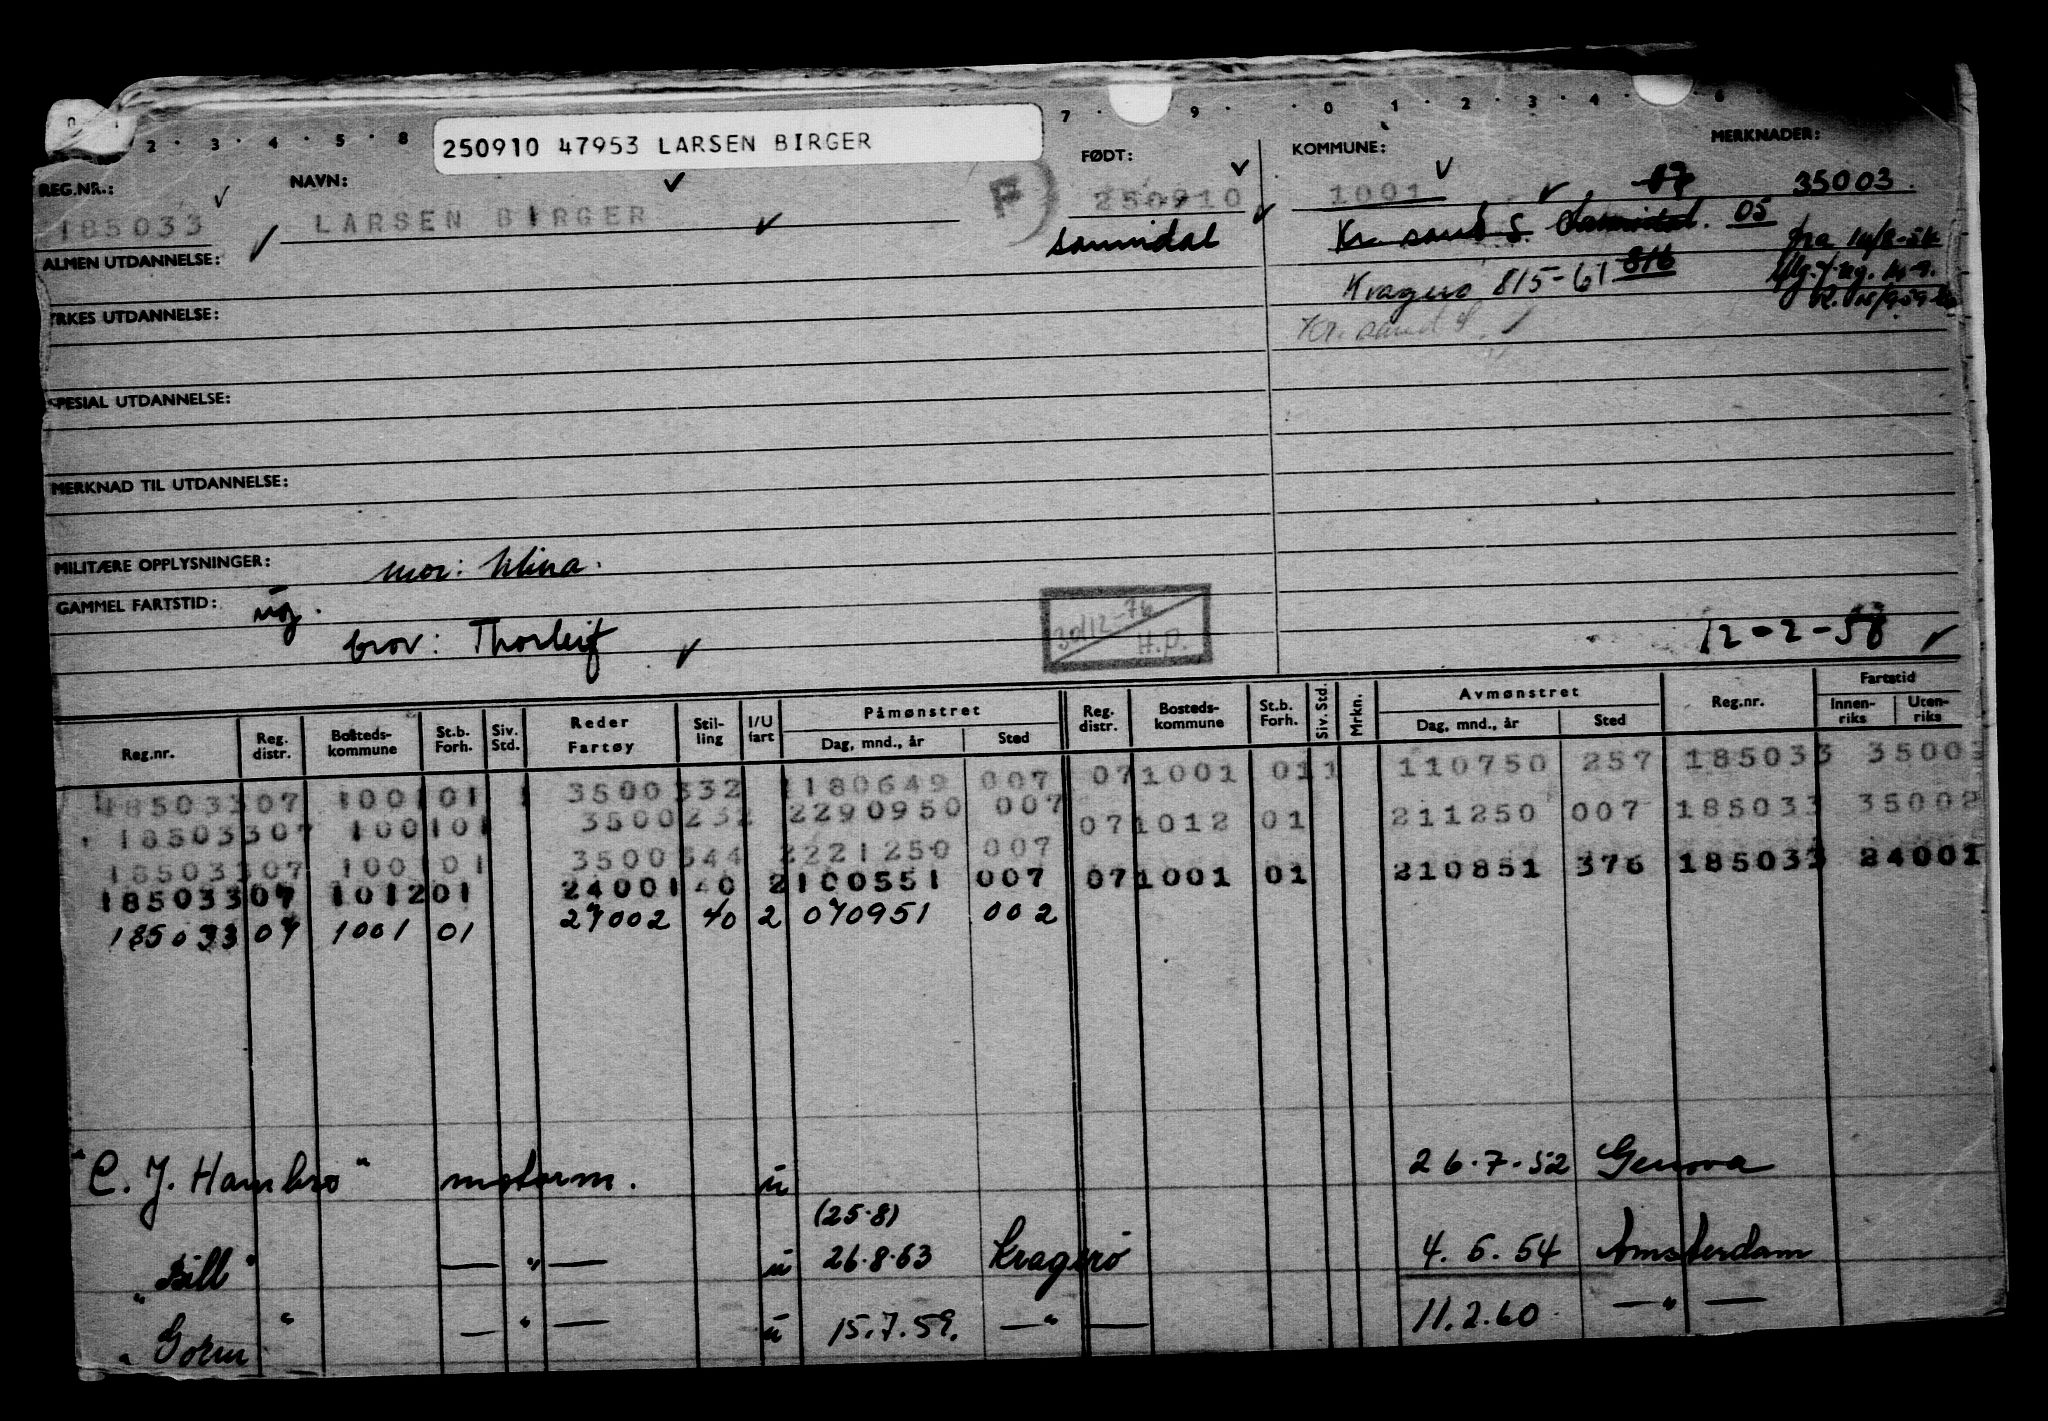 2 · 3 · 4 · 5 · 8 7 · 9 · 0 · 1 · 2 · 3 · 4 · 6
250910 47953 LARSEN BIRGER
REG.NR.: NAVN: FØDT: KOMMUNE: MERKNADER:
185033 LARSEN BIRGER F) 250910 1001 07 35003.
Sannidal Kr. sand S. Sannidal. 05
fra 14/8-54
ALMEN UTDANNELSE: Kragerø 815-61 816
YRKES UTDANNELSE: Kr. sand S.
SPESIAL UTDANNELSE:
MERKNAD TIL UTDANNELSE:
MILITÆRE OPPLYSNINGER: mor: Alina.
GAMMEL FARTSTID: ug.
30/12-76 H.P.
bror: Thorleif 12-2-58
Reg.nr. Reg. distr. Bosteds-kommune St.b. Forh. Siv. Std. Reder Fartøy Stil-ling I/U fart Påmønstret Dag, mnd., år Sted Reg. distr. Bosteds-kommune St.b. Forh. Siv. Std. Mrkn. Avmønstret Dag, mnd., år Sted Reg.nr. Fartstid Innen-riks Uten-riks
185033 07 1001 01 1 3500 332 180649 007 07 1001 01 1 110750 257 185033 35003
185033 07 1001 01 3500 232 2 290950 007 07 1012 01 211250 007 185033 35002
185033 07 1001 01 3500 344 2 221250 007
185033 07 1012 01 24001 40 2 100551 007 07 1001 01 210851 376 185033 24001
185033 07 1001 01 27002 40 2 070951 002
"C. J. Hambro" motorm. u 26.7.52 Genova
(25.8)
"Bill" — " — u 26.8.53 Kragerø 4.6.54 Amsterdam
"Gorm" — " — u 15.7.59. — " — 11.2.60 — " —